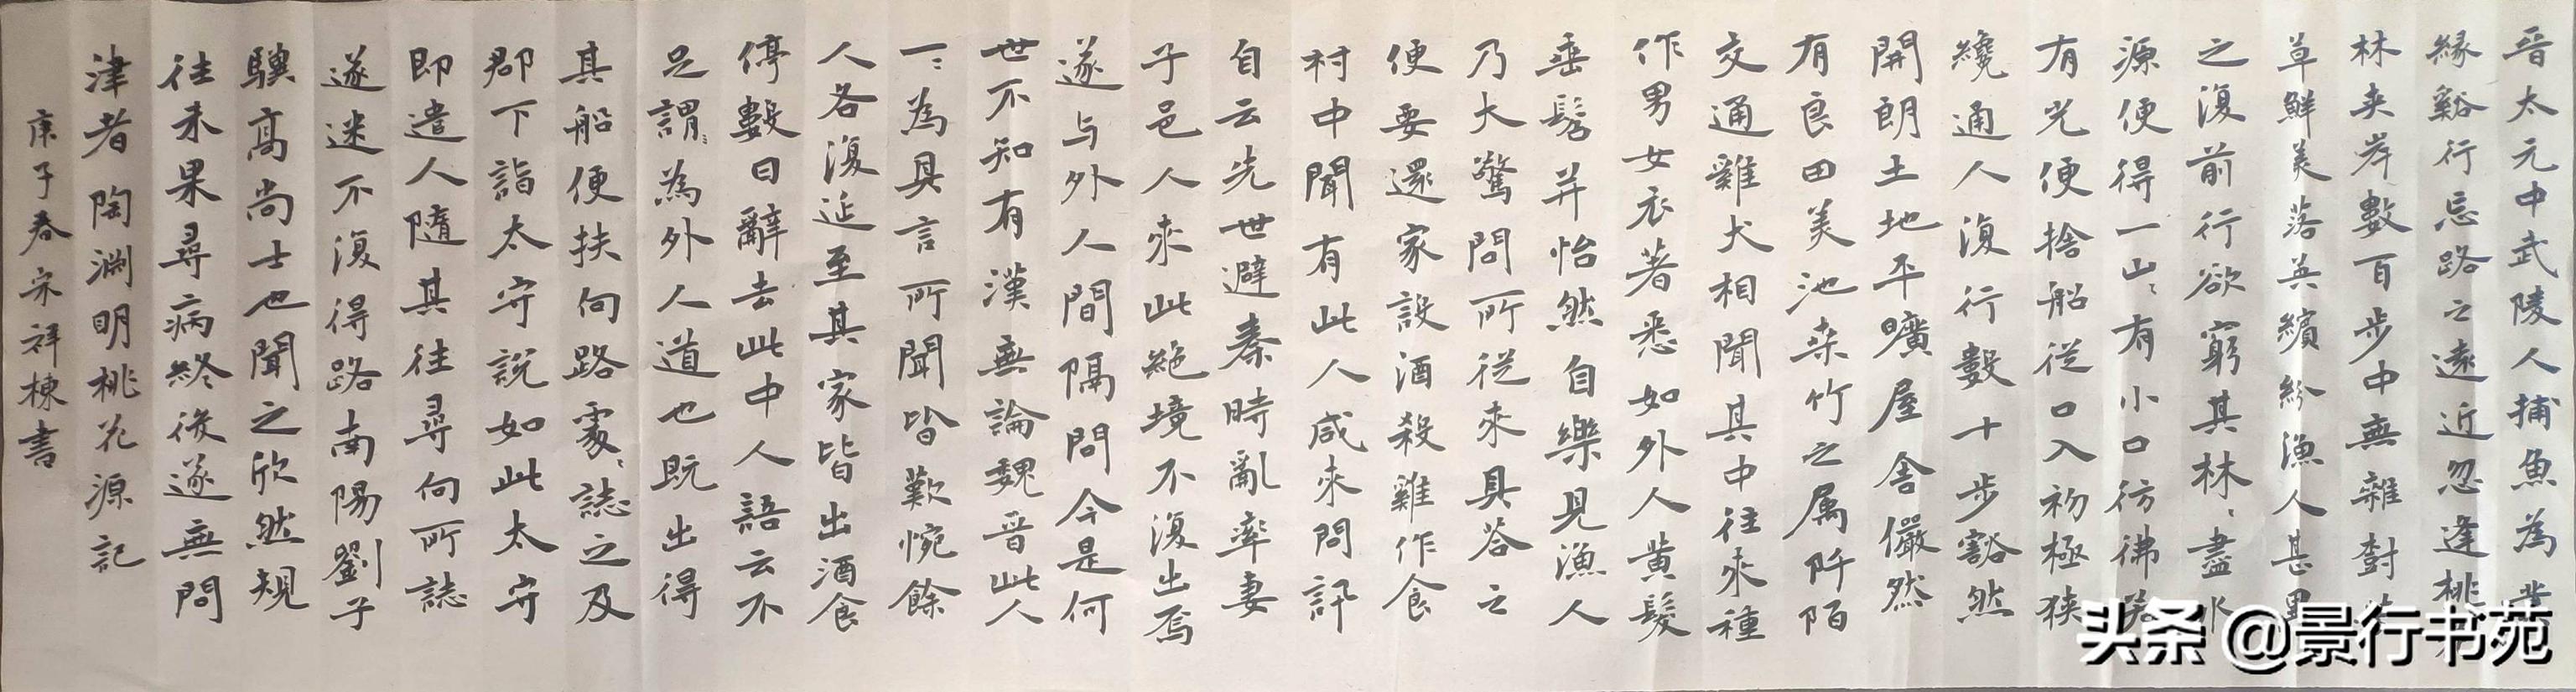 晉太元中武陵人捕魚為業
緣谿行忘路之遠近忽逢桃
林夹岸數百步中無雜樹
草鮮美落英繽紛漁人甚異
之復前行欲窮其林〻盡水
源便得一山〻有小口彷彿若
有光便捨船從口入初極狹
纔通人復行數十步豁然
開朗土地平曠屋舍儼然
有良田美池桑竹之属阡陌
交通雞犬相聞其中往來種
作男女衣著悉如外人黄髮
垂髫并怡然自樂見漁人
乃大驚問所從來具答之
便要還家設酒殺雞作食
村中聞有此人咸來問訊
自云先世避秦時亂率妻
子邑人來此絕境不復出焉
遂与外人間隔問今是何
世不知有漢無論魏晉此人
一〻為具言所聞皆歎惋餘
人各復延至其家皆出酒食
停數日辭去此中人語云不
足謂〻為外人道也既出得
其船便扶向路處〻誌之及
郡下詣太守說如此太守
即遣人隨其往尋向所誌
遂迷不復得路南陽劉子
驥高尚士也聞之欣然規
往未果尋病終後遂無問
津者 陶淵明桃花源記
庚子春宋祥棟書
头条 @景行书苑